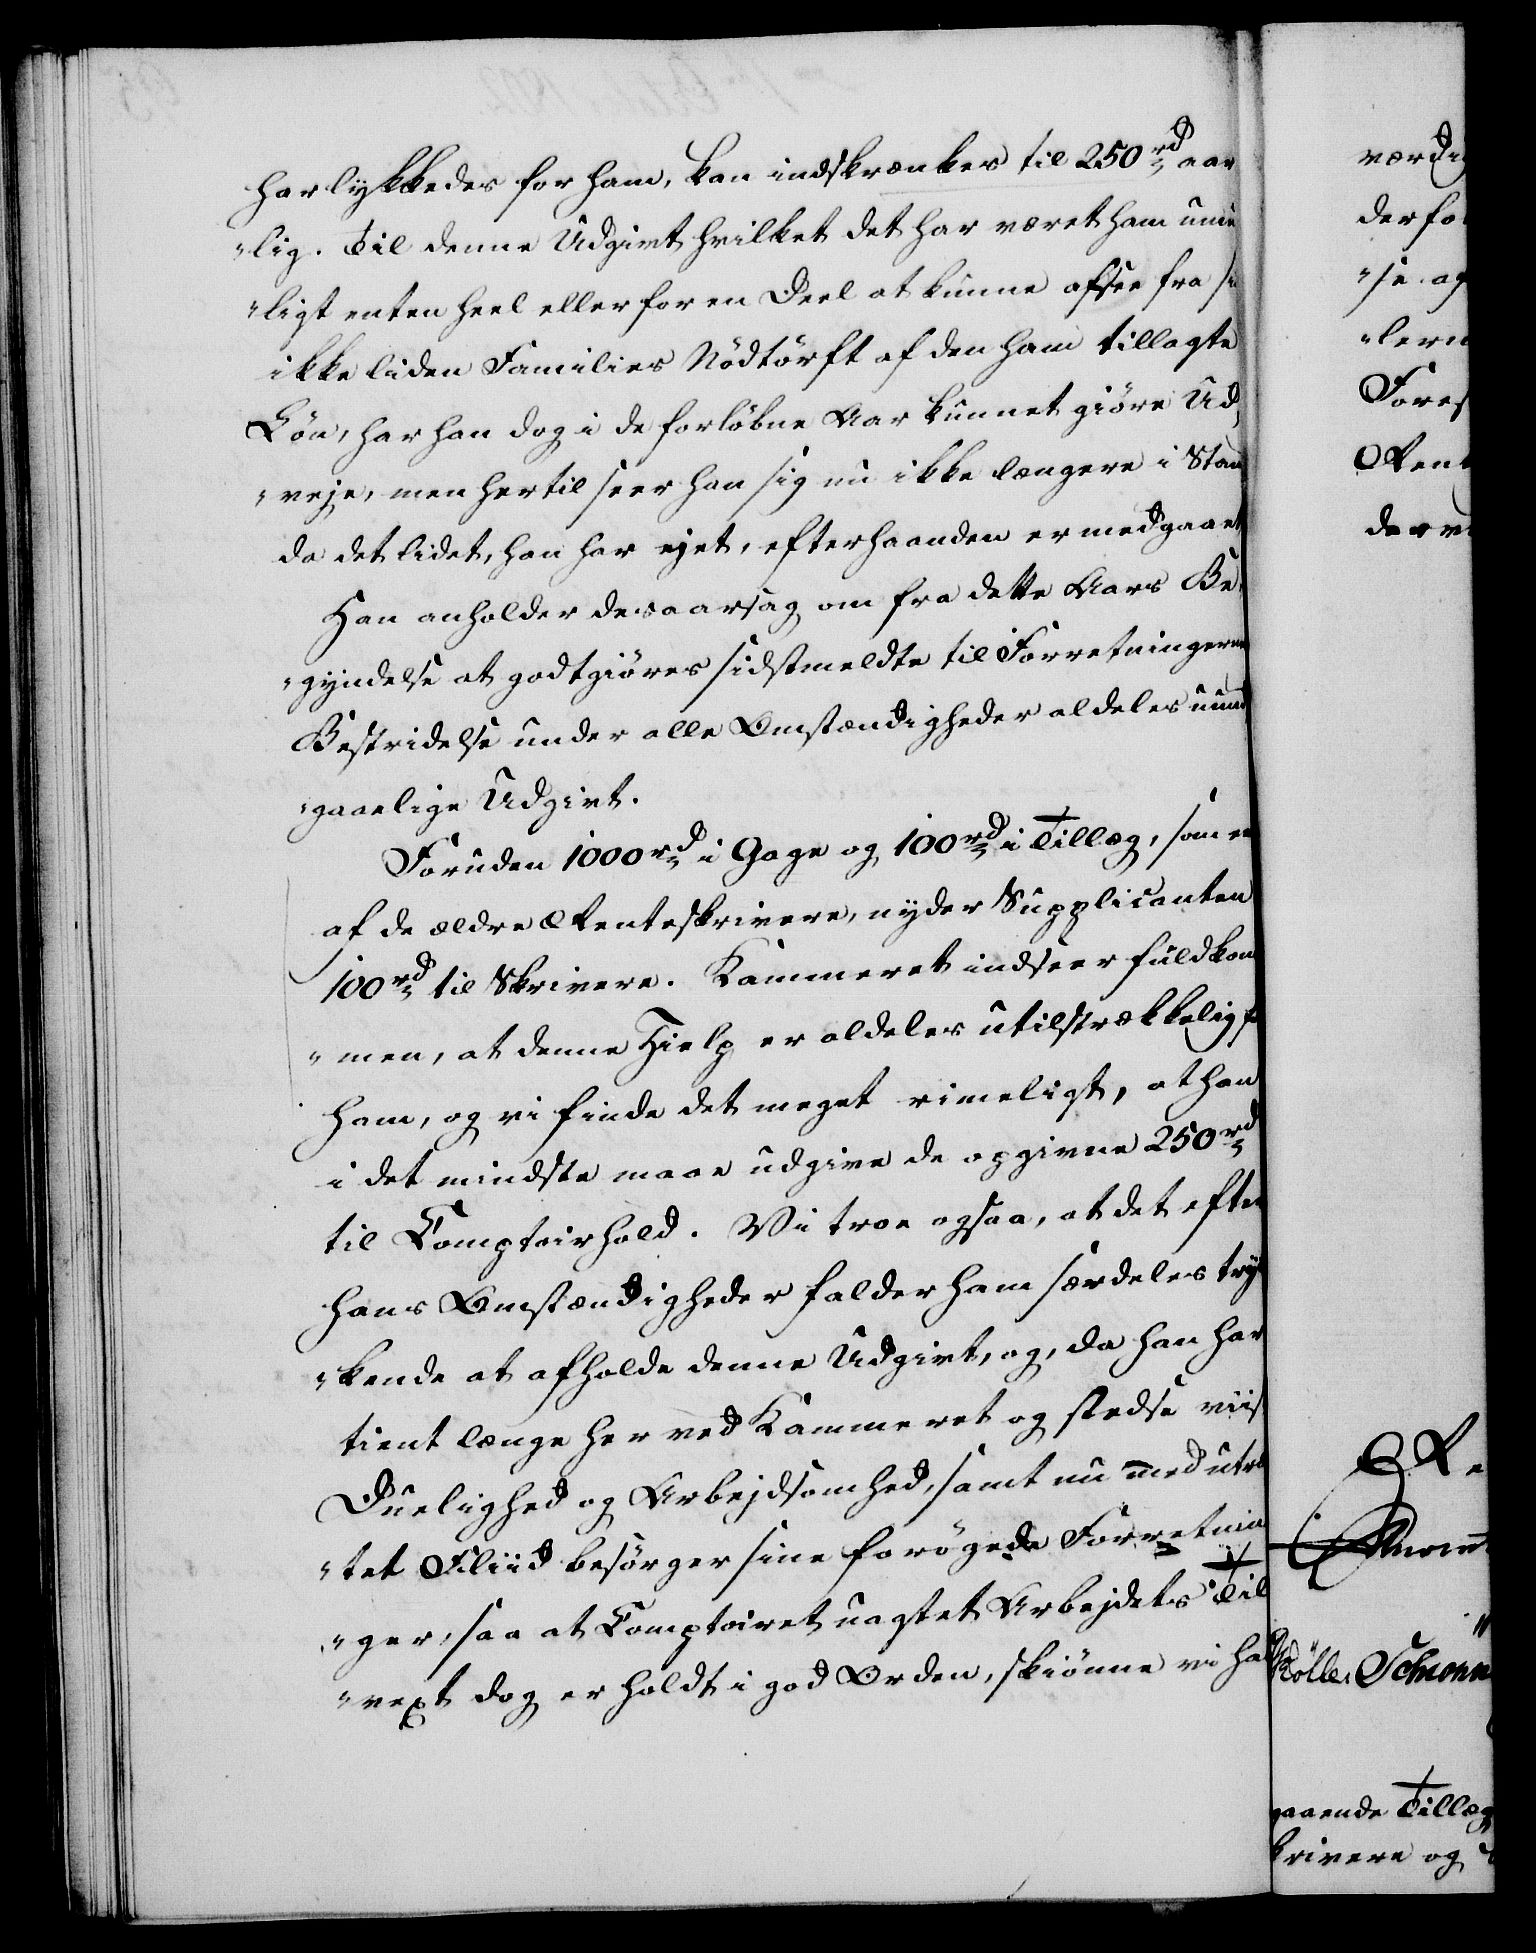 har lykkedes for ham, kan indskrænkes til 250 rd aar
"lig. Til denne Udgivt hvilket det har været ham umu
"ligt enten heel eller for en Deel at kunne afsee fra si
ikke liden Families Nödtörft af den ham tillagte
Lön, har han dog i de forløbne Aar kunnet giöre Ud,
"veje, men hertil seer han sig nu ikke længere i Stan
da det lidet, han har ejet, efterhaanden er medgaaet
Han anholder desaarsag om fra dette Aars Be,
"gyndelse at godtgiöres sidstmeldte til Forretningerne
Bestridelse under alle Omstændigheder aldeles uund
"gaaelige Udgivt.
Foruden 1000 rd i Gage og 100 rd i Tillæg, som en
af de ældre Renteskrivere, nyder Supplicanten
100 rd til Skrivere. Kammeret indseer fuldkom
"men, at denne Hielp er aldeles utilstrækkelig fo
ham, og vi finde det meget rimeligt, at han
i det mindste maae udgive de opgivne 250 rd
til Comptoirhold. Vi troe ogsaa, at det efter
hans Omstændigheder falder ham særdeles tryk
"kende at afholde denne Udgivt, og, da han har
tient længe her ved Kammeret og stedse viist
Duelighed og Arbejdsomhed, samt nu med utræt
"tet Fliid besörger sine forögede Forretnin
"ger, saa at Comptoiret uagtet Arbejdets Til
"vext dog er holdt i god Orden, skiönne vi ha
værdig
der fo
"se og
"lern
Fores
Rent
derve
Re
Kölle. Schmenn
gaaende Tillæg
krivere og